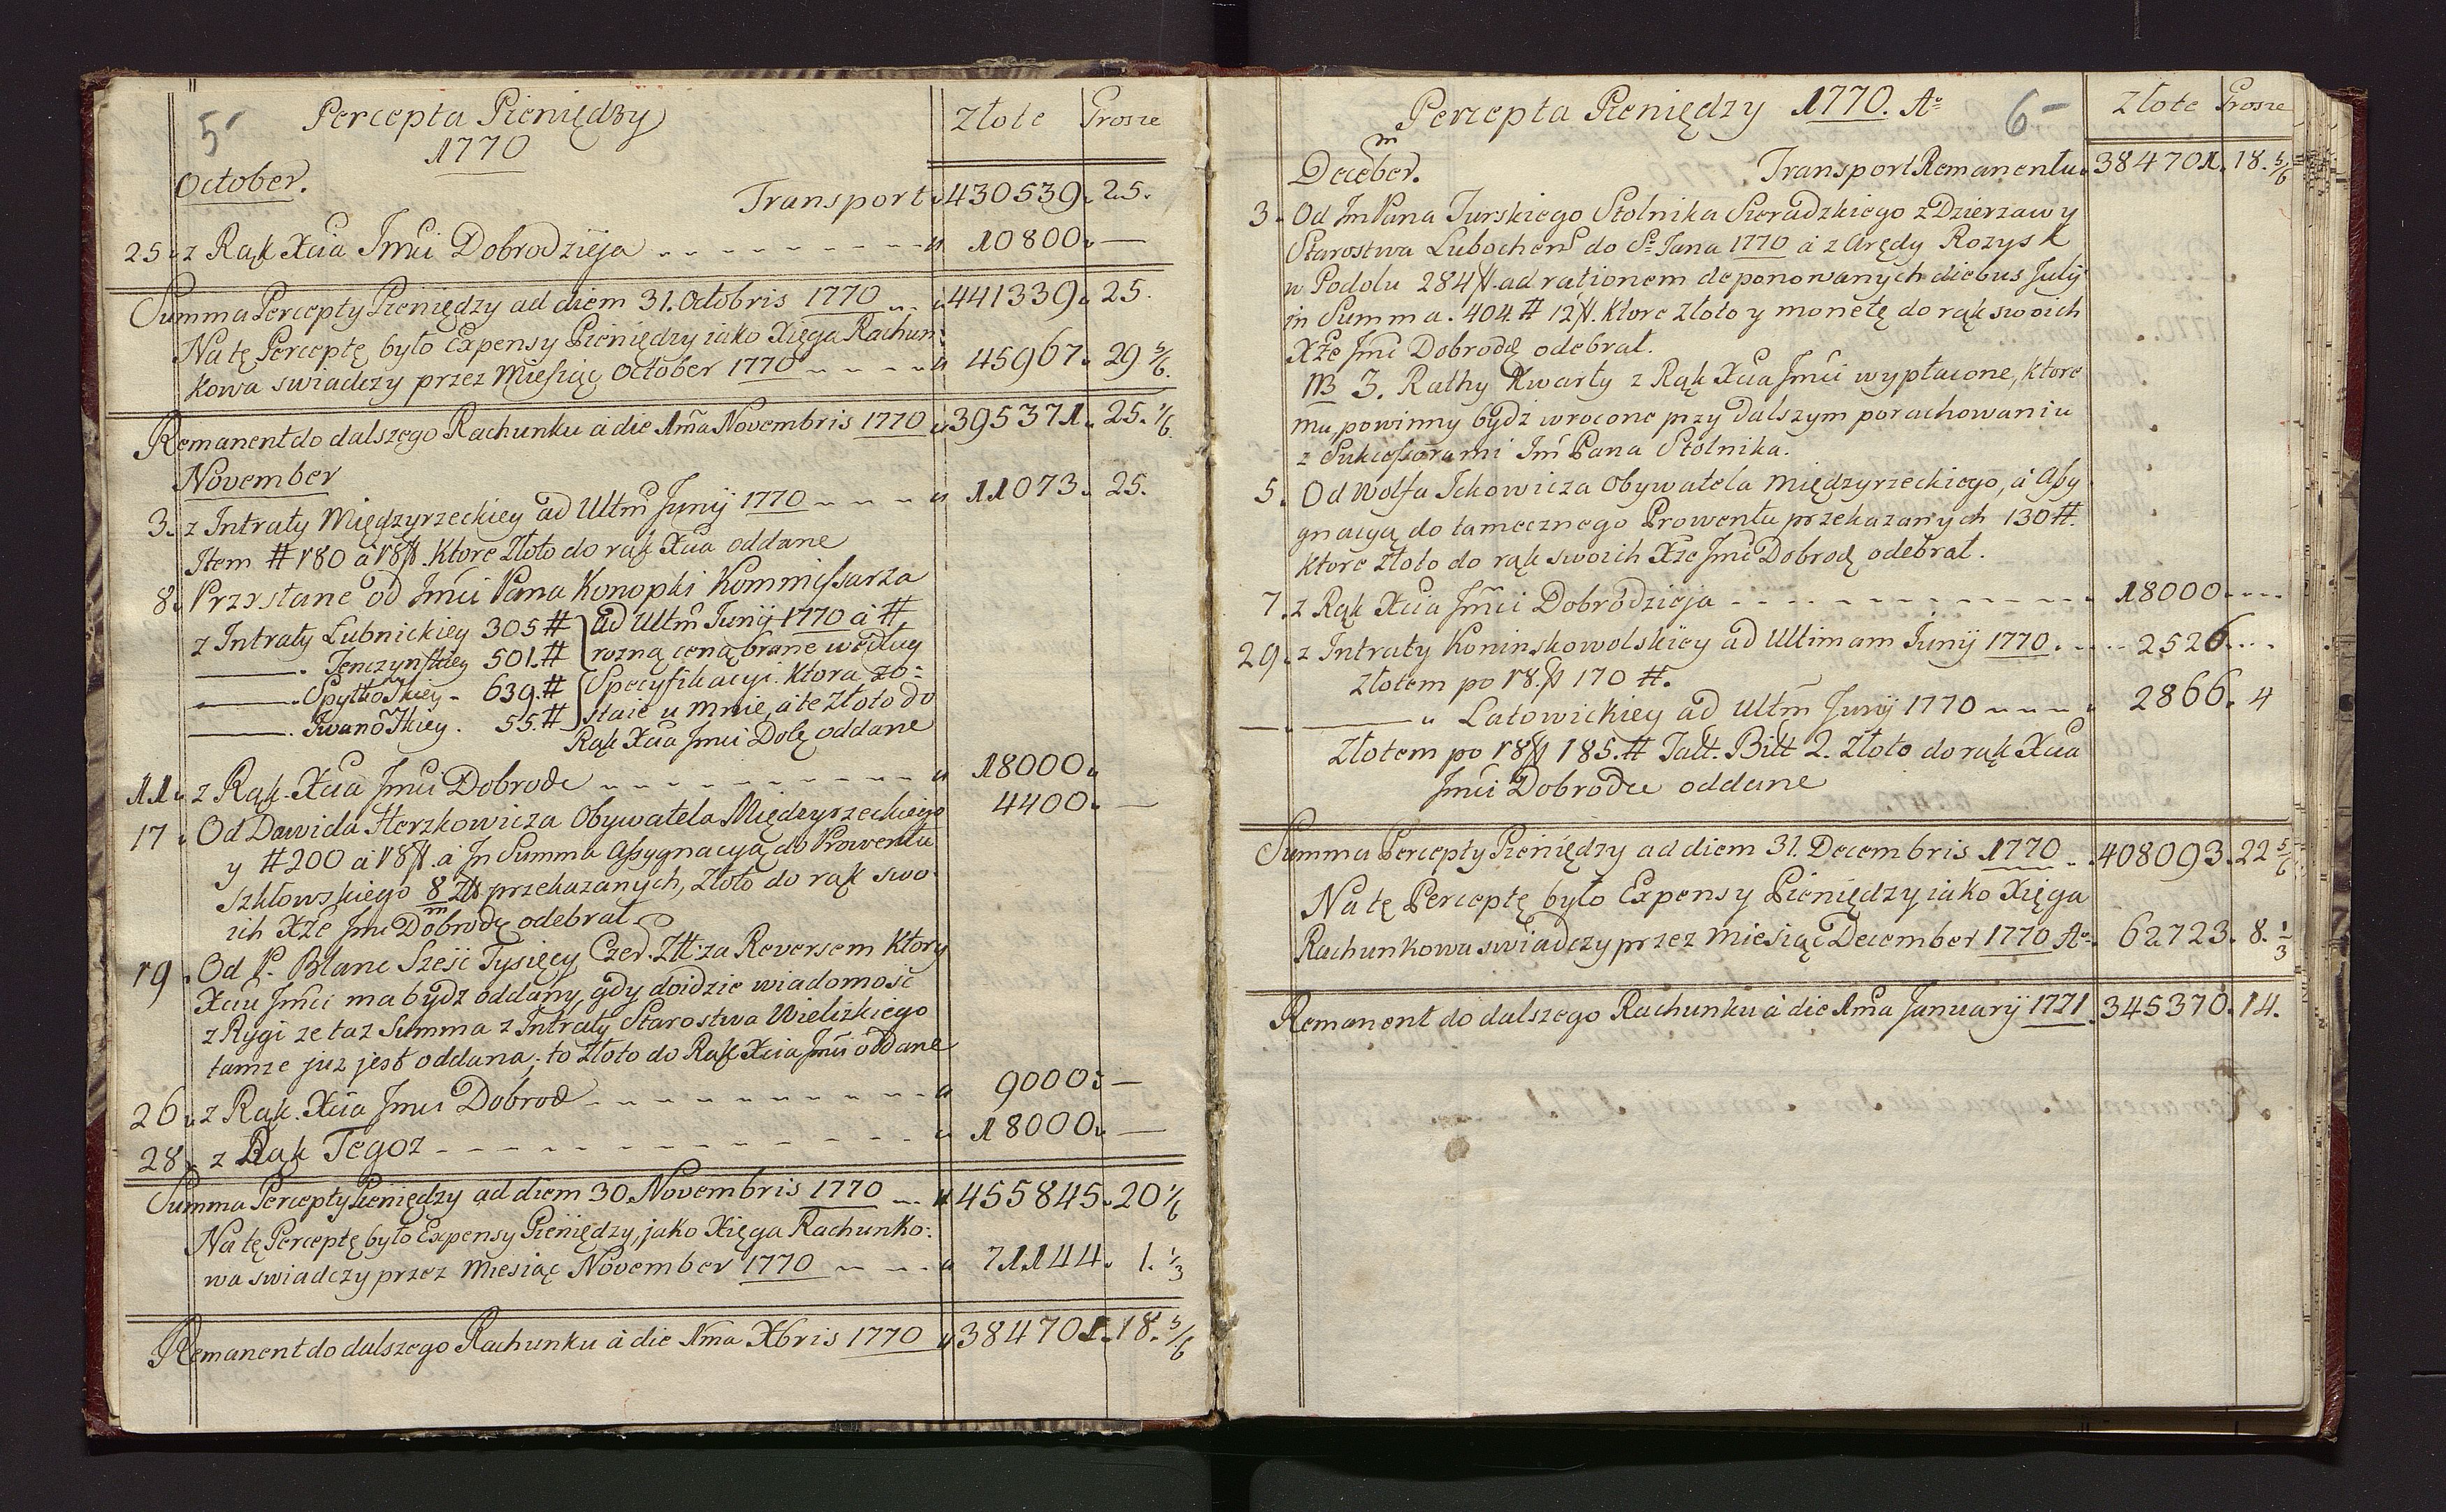 5
Percepta Pieniędzy
1770
Złote Grosze
October.
Transport 430539. 25.
25. z Rąk Xcia Jmci Dobrodzieja 10800. —
Summa Percepty Pieniędzy ad diem 31. Octobris 1770 441339. 25.
Na tę Perceptę było Expensy Pieniędzy iako Xięga Rachun:
kowa swiadczy przez Miesiąc October 1770 45967. 29 5/6.
Remanent do dalszego Rachunku á die 1ma Novembris 1770 395371. 25. 1/6.
November
3. z Intraty Międzyrzeckiey ad Ultm Junij 1770 11073. 25.
Item # 180 á 18 ff. Ktore Złoto do rąk Xcia oddane
8. Przysłane od Jmci Pana Konopki Kommissarza
z Intraty Lubnickiey 305 # ad Ultm Junij 1770 á #
—. Tenczynskiey 501. # rozną ceną brane według
—. Spytkoskiey - 639. # Specyfikacyi. Ktora zo:
—. Iwanoskiey. 55. # staie u mnie, á te Złoto do
Rąk Xcia Jmci Dobę oddane
11. z Rąk. Xcia Jmci Dobrode 18000.
17. Od Dawida Herzkowicza Obywatela Międzyrzeckiego 4400. —
y # 200 á 18 ff. á In Summa Assygnacyą do Prowentu
Szkłowskiego 8/m Zł przekazanych, Złoto do rąk swo
ich Xże Jmc Dobrodę odebrał.
19. Od P. Blanc Sześć Tysięcy Czer. Zł: za Reversem Ktory
Xciu Jmci ma bydz oddany, gdy doidzie wiadomość
z Rygi ze taz Summa z Intraty Starostwa Wielizkiego
tamze juz jest oddana; to Złoto do Rąk Xcia Jmci oddane
26. z Rąk. Xcia Jmci Dobrod 9000. —
28. z Rąk Tegoz 18000. —
Summa Percepty Pieniędzy ad diem 30. Novembris 1770 455845. 20 1/6
Na tę Perceptę było Expensy Pieniędzy, jako Xięga Rachunko:
wa swiadczy przez Miesiąc November 1770 71144. 1. 1/3
Remanent do dalszego Rachunku á die 1ma Xbris 1770 384701. 18. 5/6
Percepta Pieniędzy 1770. Ao
6
Złote Grosze
Deceber. m Transport Remanentu 384701. 18. 5/6
3. Od Jm Pana Turskiego Stolnika Sieradzkiego z Dzierzawy
Starostwa Lubochens do Sgo Jana 1770 á z Arędy Rozysk
w Podolu 284 ff. ad rationem deponowanych diebus Julij
in Summa. 404. # 12 ff. Ktore Złoto y monetę do rąk swoich
Xże Jmć Dobrodź odebrał.
NB 3. Rathy Kwarty z Rąk Xcia Jmci wypłacone, ktore
mu powinny bydź wrocone przy dalszym porachowaniu
z Sukcessorami Jm Pana Stolnika.
5. Od Wolfa Ickowicza Obywatela Międzyrzeckiego, á Assy
gnacyą do tamecznego Prowentu przekazanych 130 #.
ktore złoto do rąk swoich Xże Jmć Dobrodź odebrał.
7. z Rąk Xcia Jmci Dobrodzieja 18000.
29. z Intraty Koninskowolskiey ad Ultimam Junij 1770. 2526.
Złotem po 18. ff 170 #.
— Latowickiey ad Ultm Junij 1770 2866. 4
Złotem po 18 ff 185. # Talt. Bitt 2. Złoto do rąk Xcia
Jmci Dobrodze oddane
Summa Percepty Pieniędzy ad diem 31. Decembris 1770 408093. 22 5/6
Na tę Perceptę było Expensy Pieniędzy iako Xięga
Rachunkowa swiadczy przez Miesiąc December 1770 Ao 62723. 8. 1/3
Remanent do dalszego Rachunku á die 1ma Januarij 1771. 345370. 14.